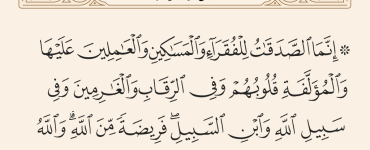 ۞ إِنَّمَا ٱلصَّدَقَـٰتُ لِلْفُقَرَآءِ وَٱلْمَسَـٰكِينِ وَٱلْعَـٰمِلِينَ عَلَيْهَا
وَٱلْمُؤَلَّفَةِ قُلُوبُهُمْ وَفِى ٱلرِّقَابِ وَٱلْغَـٰرِمِينَ وَفِى
سَبِيلِ ٱللَّهِ وَٱبْنِ ٱلسَّبِيلِ ۖ فَرِيضَةً مِّنَ ٱللَّهِ ۗ وَٱللَّهُ